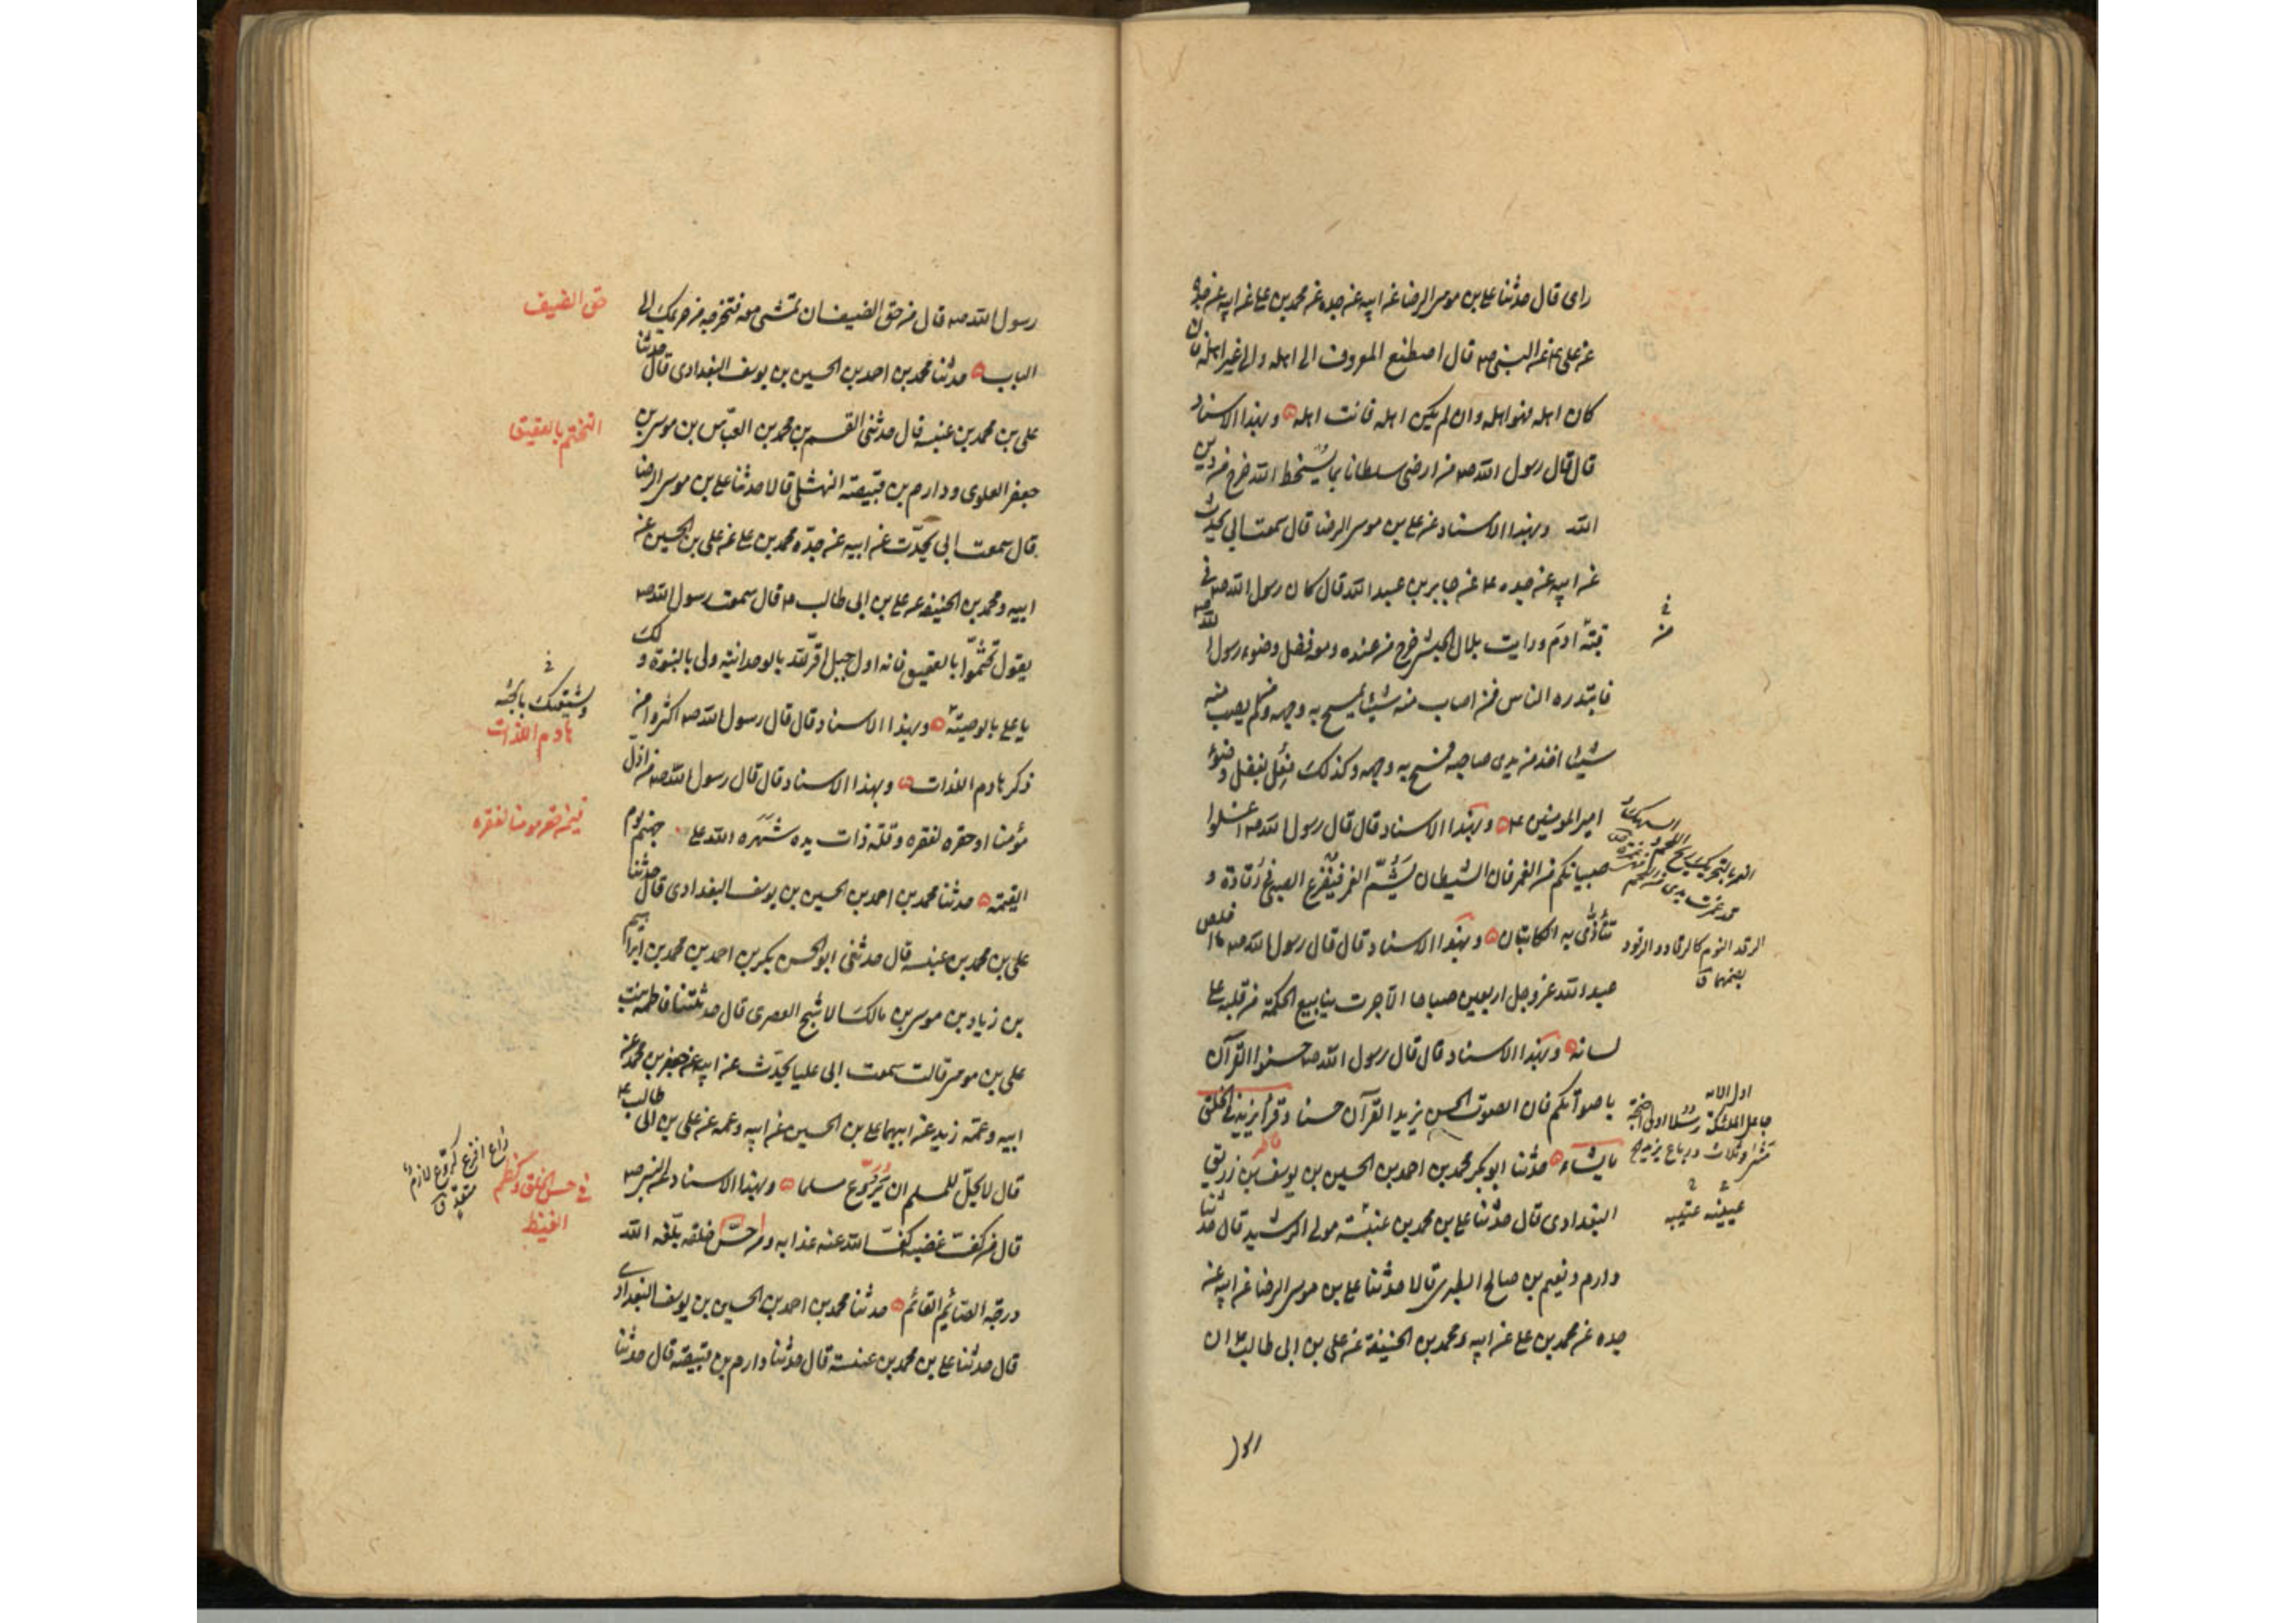 رای قال حدثنا علی بن موسی الرضا عن ابیه عن جده عن محمد بن علی عن ابیه عن جده
عن علی ع عن النبی ص قال اصطنع المعروف الی اهله والی غیر اهله فان
کان اهله فهو اهله وان لم یکن اهله فانت اهله وبهذا الاسناد
قال قال رسول الله ص من ارضی سلطانا بما یسخط الله خرج من دین
الله وبهذا الاسناد عن علی بن موسی الرضا قال سمعت ابی یحدث
عن ابیه عن جده ع عن جابر بن عبد الله قال کان رسول الله ص فی
قبّة ادم ورایت بلال الحبشی خرج من عنده ومعه فضل وضوء رسول الله ص
فابتدره الناس فمن اصاب منه شیئا یمسح به وجهه ومن لم یصب منه
شیئا اخذ من یدی صاحبه فمسح به وجهه وکذلک فعل بفضل وضوء
امیر المومنین ع وبهذا الاسناد قال قال رسول الله ص اغسلوا
صبیانکم من الغمر فان الشیطان یشمّ الغمر فیفزع الصبی فی رقاده و
تتأذّی به الکاتبان وبهذا الاسناد قال قال رسول الله ص ما اخلص
عبد الله عز وجل اربعین صباحا الا جرت ینابیع الحکمة من قلبه علی
لسانه وبهذا الاسناد قال قال رسول الله ص حسنوا القرآن
باصواتکم فان الصوت الحسن یزید القرآن حسنا وقرأ یزید فی الخلق
ما یشاء حدثنا ابو بکر محمد بن احمد بن الحسین بن یوسف بن زریق
البغدادی قال حدثنا علی بن محمد بن عنبسة مولی الرشید قال حدثنا
دارم ونعیم بن صالح الطبری قالا حدثنا علی بن موسی الرضا عن ابیه عن
جده عن محمد بن علی عن ابیه ومحمد بن الحنیفة عن علی بن ابی طالب ع ان
الرقد النوم کالرقاد والرقود
بضمهما ق
جاعل الملئکة رسلا اولی اجنحة
مثنی وثلاث ورباع یزید
رسول
رسول الله ص قال من حق الضیف ان تمشی معه فتخرجه من حریمک الی
الباب حدثنا محمد بن احمد بن الحسین بن یوسف البغدادی قال حدثنا
علی بن محمد بن عنبسه قال حدثنی القسم بن محمد بن العباس بن موسی بن
جعفر العلوی ودارم بن قبیصة النهشلی قالا حدثنا علی بن موسی الرضا
قال سمعت ابی یحدّث عن ابیه عن جدّه محمد بن علی عن علی بن الحسین عن
ابیه ومحمد بن الحنیفه عن علی بن ابی طالب ع قال سمعت رسول الله ص
یقول تختّموا بالعقیق فانه اول جبل اقرّ لله بالوحدانیة ولی بالنبوة ولک
یا علی بالوصیّة وبهذا الاسناد قال قال رسول الله ص اکثروا من
ذکر هادم اللذات وبهذا الاسناد قال قال رسول الله ص من اذلّ
مؤمنا او حقره لفقره وقلة ذات یده شهره الله علی جهنم یوم
القیمة حدثنا محمد بن احمد بن الحسین بن یوسف البغدادی قال حدثنا
علی بن محمد بن عنبسه قال حدثنی ابو الحسن بکر بن احمد بن محمد بن ابراهیم
بن زیاد بن موسی بن مالک الاشج العصری قال حدثتنا فاطمة بنت
علی بن موسی قالت سمعت ابی علیا یحدّث عن ابیه عن جعفر بن محمد عن
ابیه وعمّه زید عن ابیهما علی بن الحسین عن ابیه وعمه عن علی بن ابی طالب ع
قال لا یحلّ للمسلم ان یروّع مسلما وبهذا الاسناد عن النبی ص
قال من کفّ غضبه کفّ الله عنه عذابه ومن حسّن خلقه بلّغه الله
درجة الصائم القائم حدثنا محمد بن احمد بن الحسین بن یوسف البغدادی
قال حدثنا علی بن محمد بن عنبسة قال حدثنا دارم بن قبیصة قال حدثنا
حق الضیف
التختم بالعقیق
ولشیعتک بالجنة
هادم اللذات
فیمن حقر مومنا لفقره
فی حسن الخلق وکظم
الغیظ